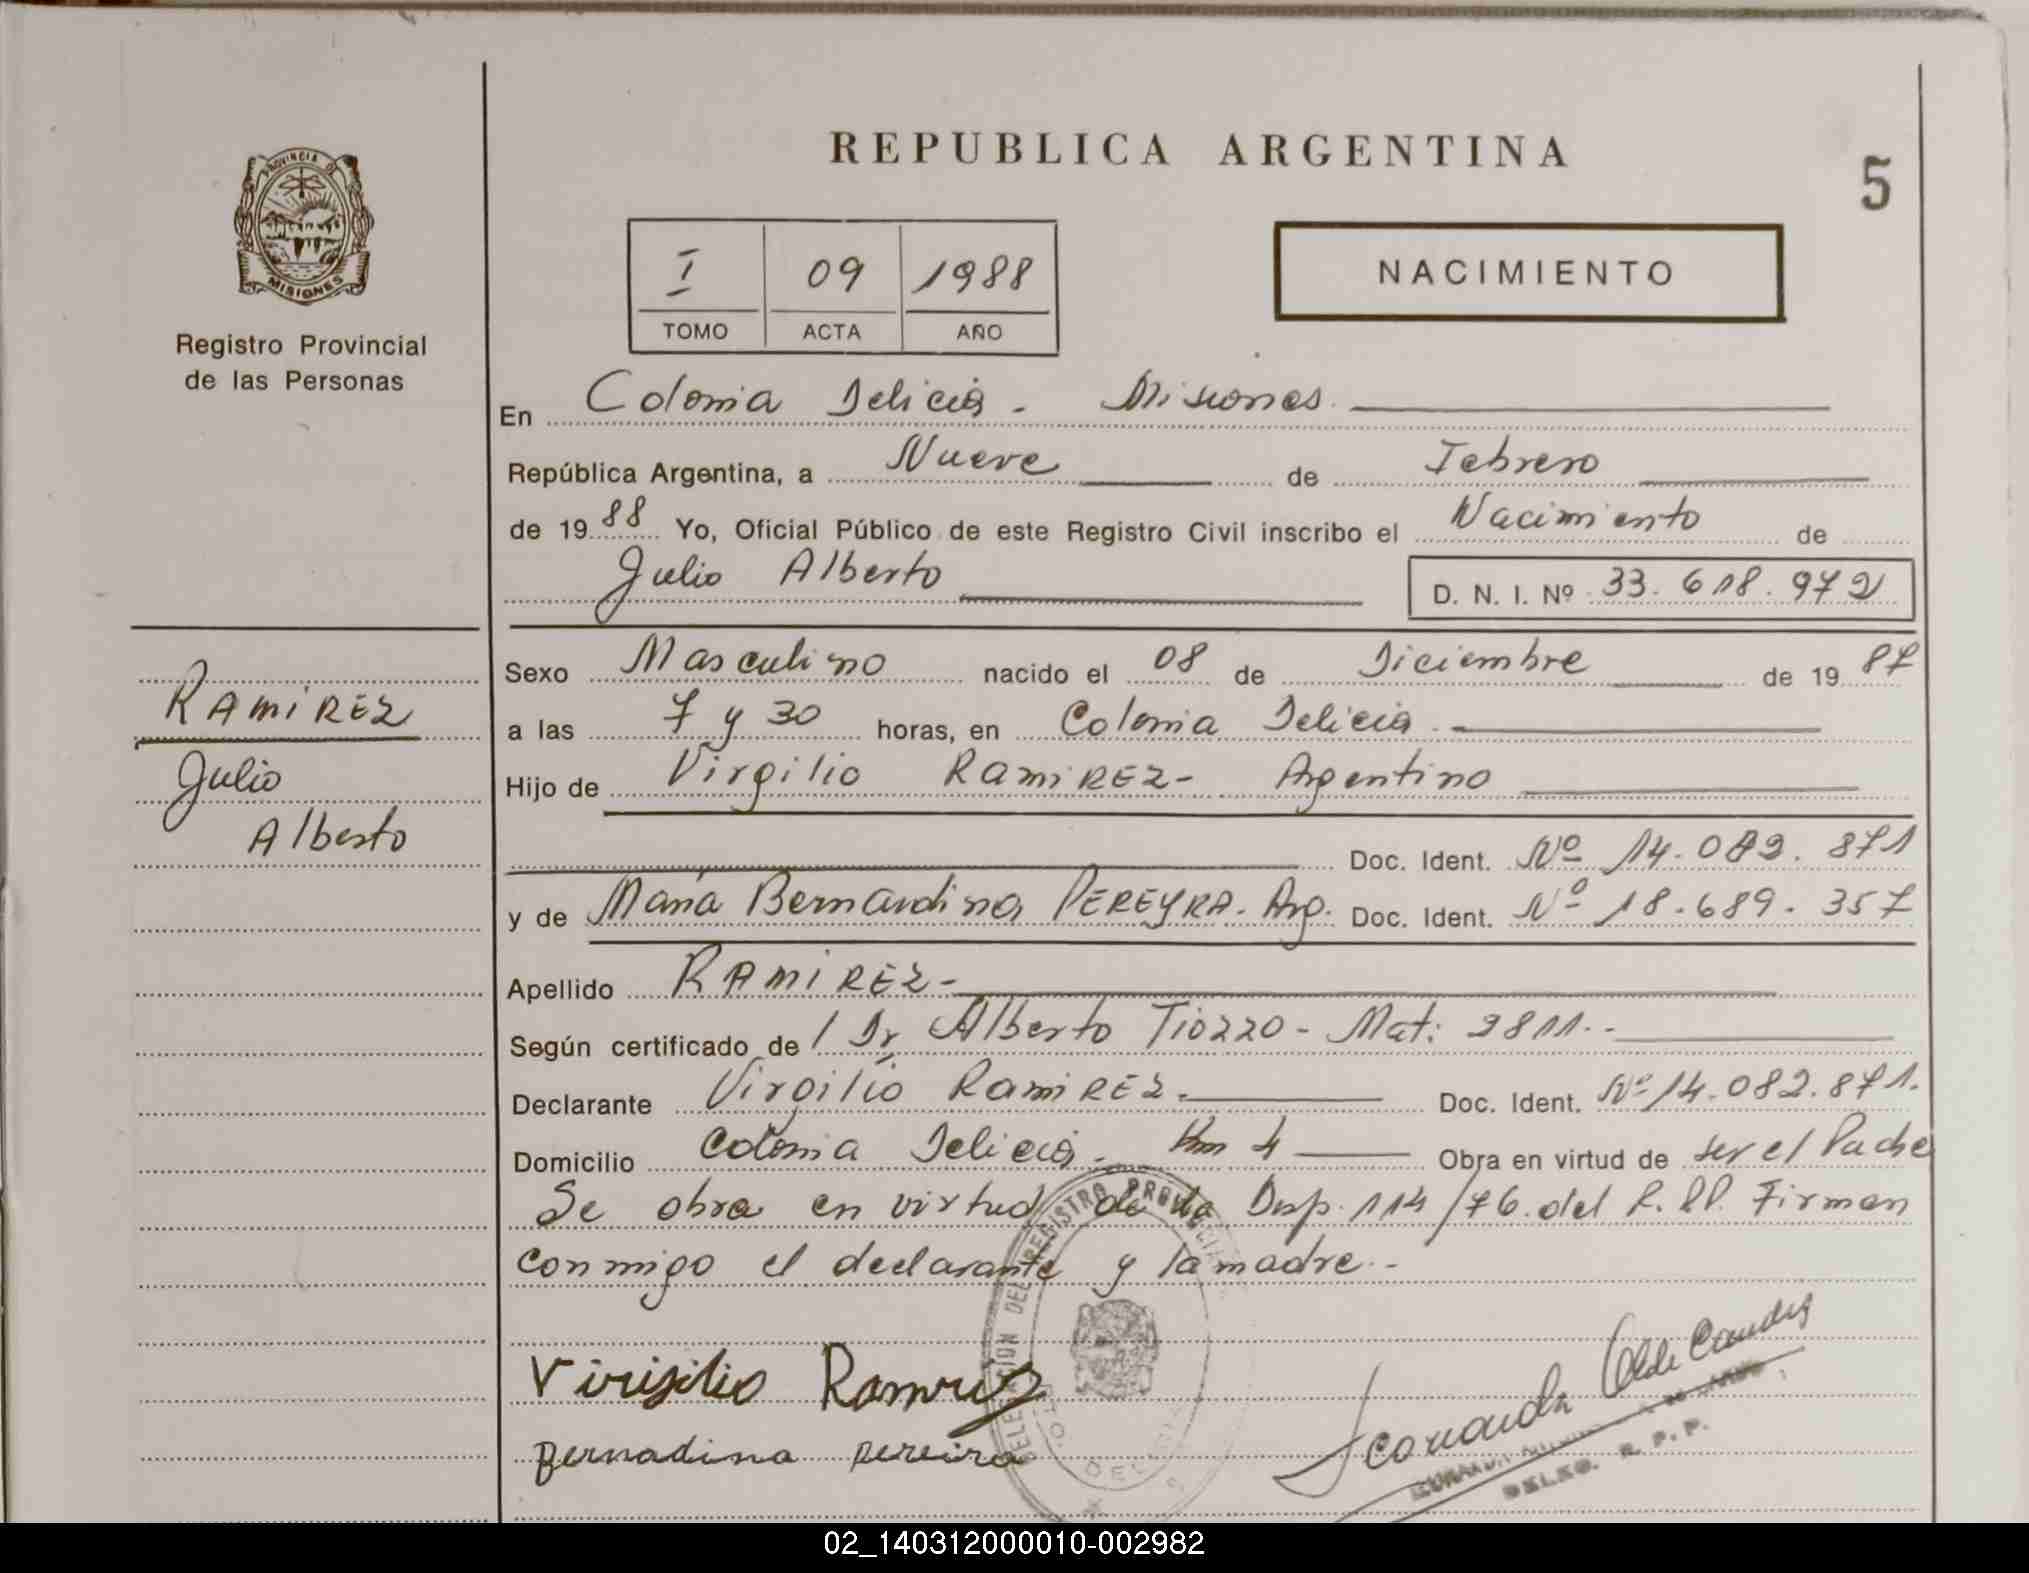 REPUBLICA ARGENTINA
5
PROVINCIA DE
MISIONES
Registro Provincial
de las Personas
I 09 1988
TOMO ACTA AÑO
NACIMIENTO
En Colonia Delicia - Misiones
República Argentina, a Nueve de Febrero
de 1988 Yo, Oficial Público de este Registro Civil inscribo el Nacimiento de
Julio Alberto D. N. I. Nº 33.618.972
RAMIREZ
Julio
Alberto
Sexo Masculino nacido el 08 de Diciembre de 1987
a las 7 y 30 horas, en Colonia Delicia
Hijo de Virgilio RAMIREZ - Argentino
Doc. Ident. Nº 14.082.871
y de María Bernardina PEREYRA. Arg. Doc. Ident. Nº 18.689.357
Apellido RAMIREZ-
Según certificado de / Dr Alberto Tiozzo - Mat: 2811.-
Declarante Virgilio RAMIREZ. Doc. Ident. Nº 14.082.871.
Domicilio Colonia Delicia - Km 4 Obra en virtud de ser el Padre
Se obra en virtud de la Disp. 114/76 del R.PP. Firman
conmigo el declarante y la madre.-
DEL REGISTRO PROVINCIAL
Virigilio Ramirez
Bernadina pereira
DELEG. R.P.P.
02_140312000010-002982